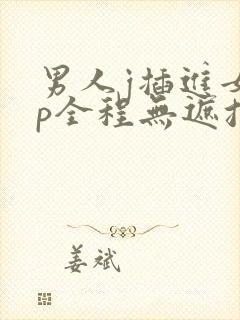 男人j插進女
p全程無遮拦
姜斌